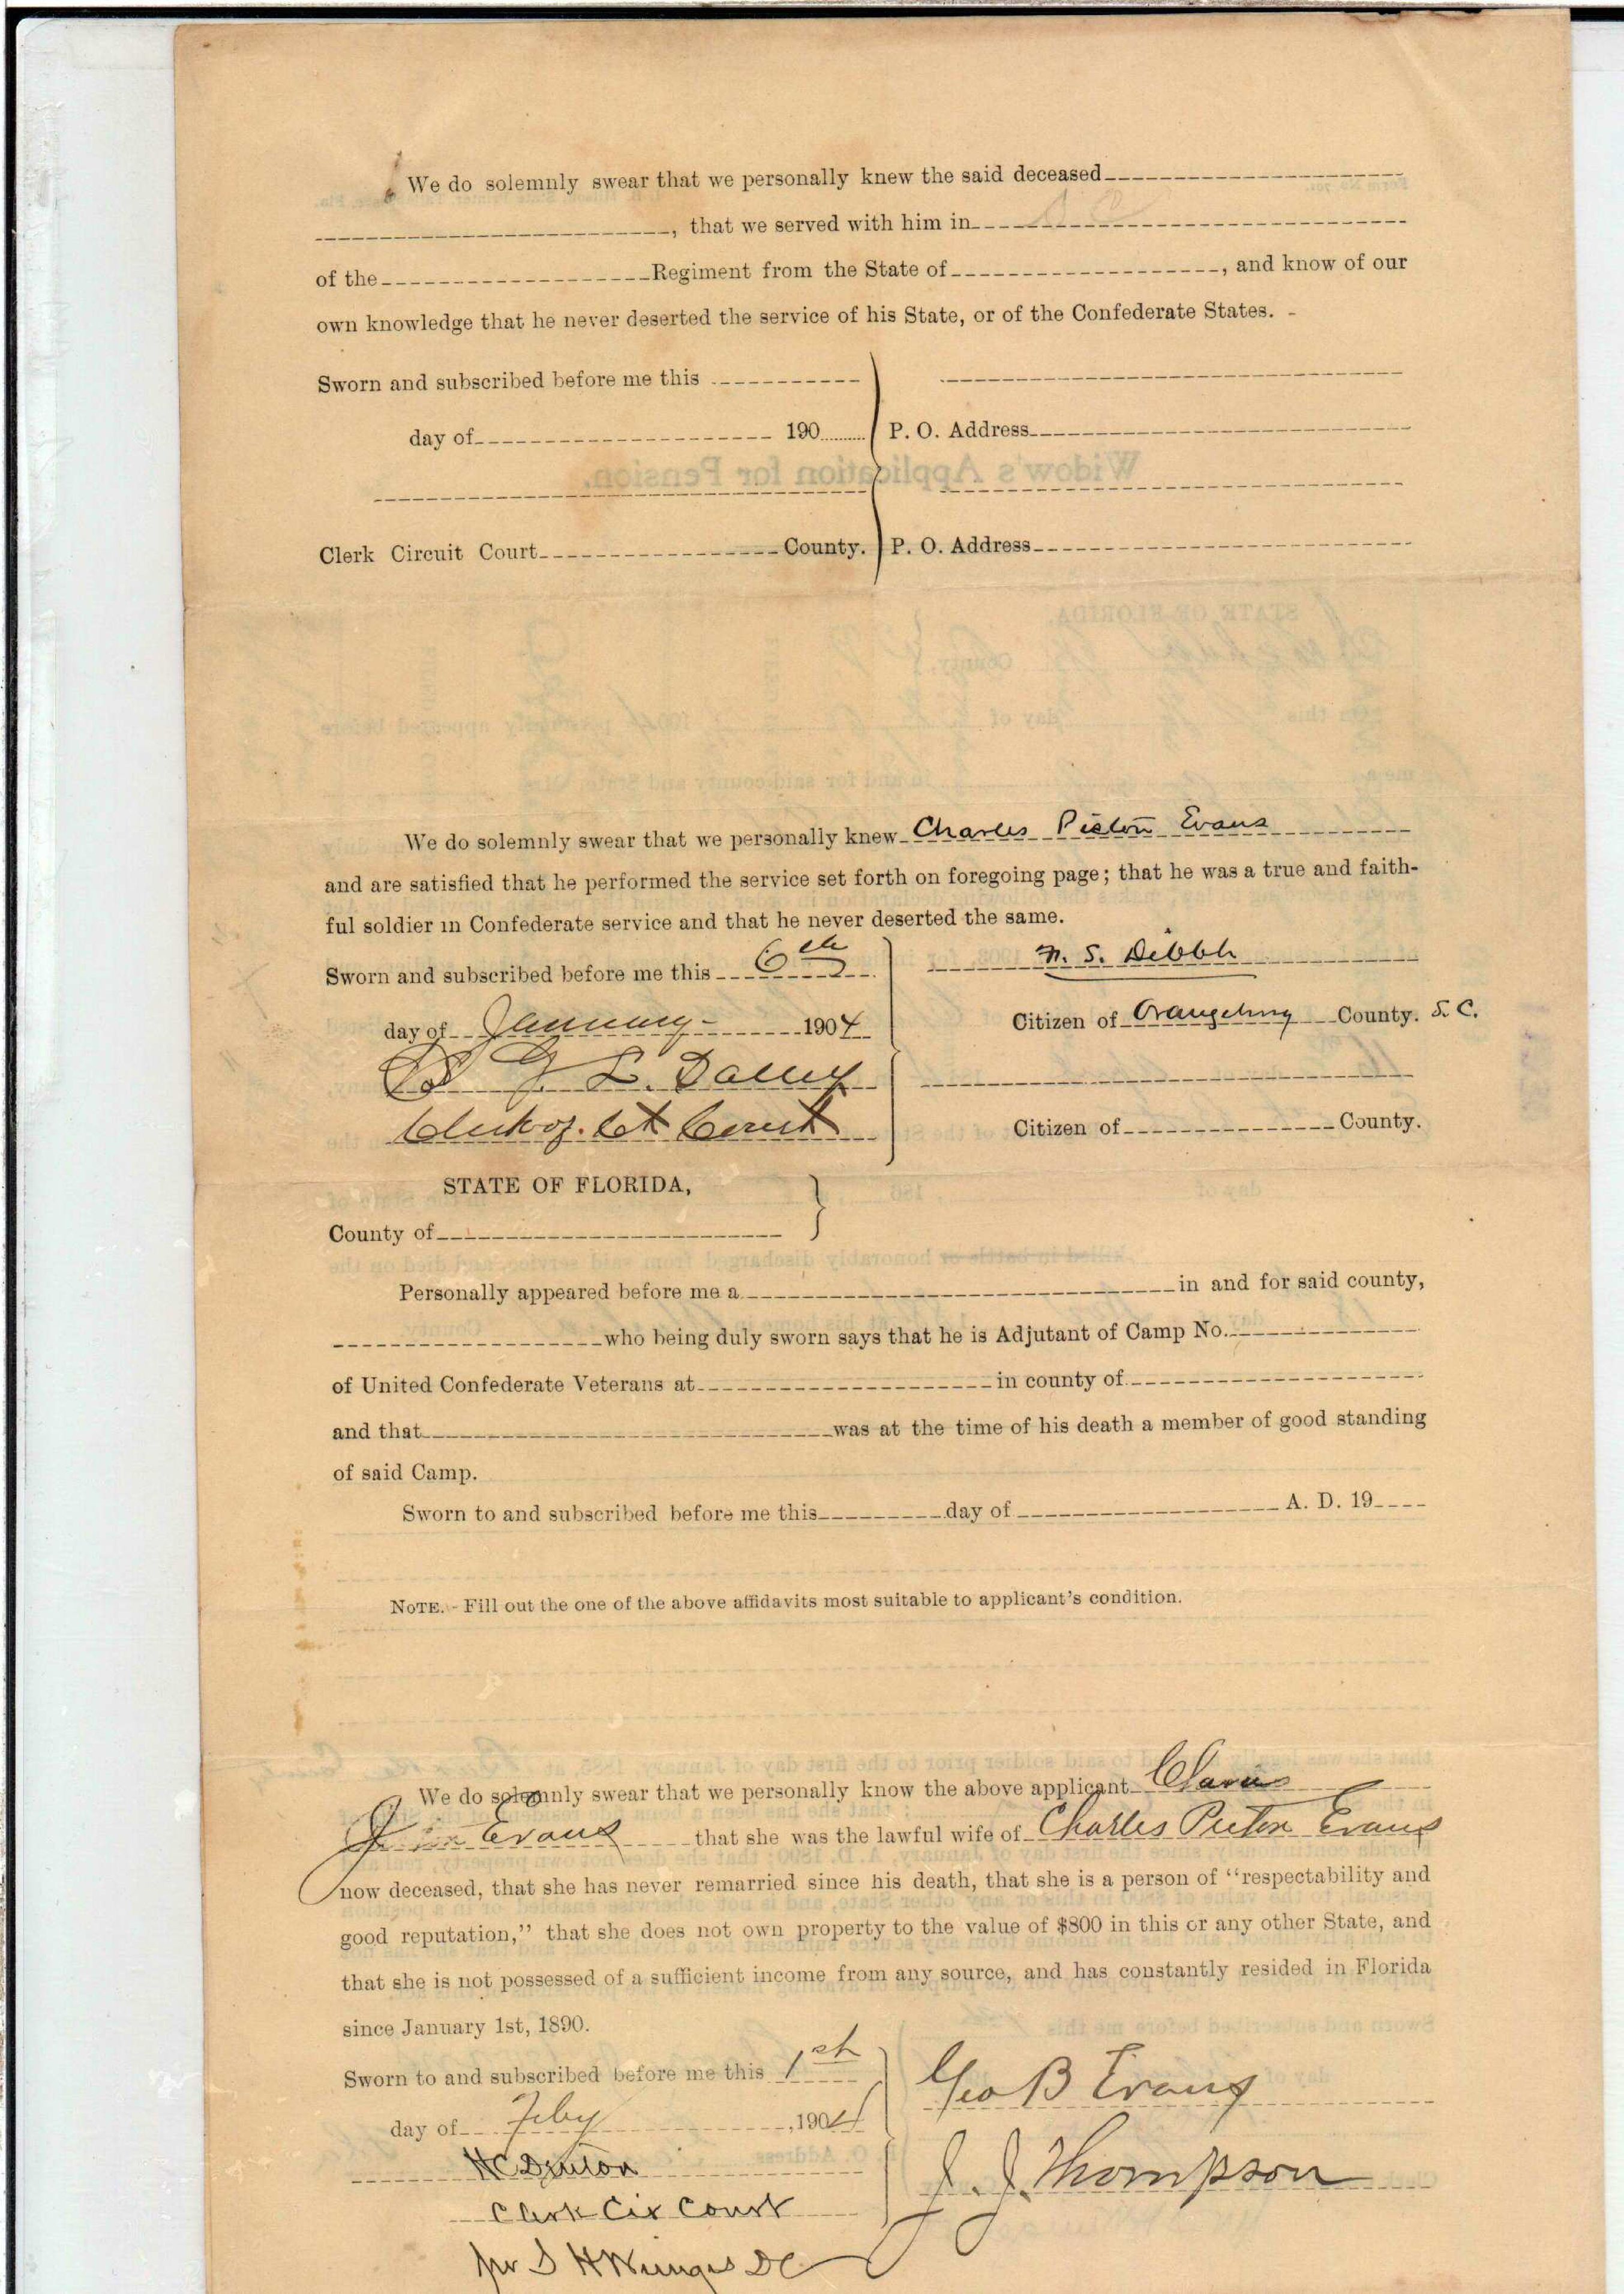 We do solemnly swear that we personally knew the said deceased
, that we served with him in
of the Regiment from the State of , and know of our
own knowledge that he never deserted the service of his State, or of the Confederate States.
Sworn and subscribed before me this
day of 190 P. O. Address
Widow's Application for Pension.
Clerk Circuit Court County. P. O. Address
STATE OF FLORIDA
We do solemnly swear that we personally knew Charles Picton Evans
and are satisfied that he performed the service set forth on foregoing page; that he was a true and faith-
ful soldier in Confederate service and that he never deserted the same.
Sworn and subscribed before me this 6th
N. S. Dibble
day of January 1904
Citizen of Orangeburg County. S. C.
G. L. Salley
Clerk of Ct Court
Citizen of County.
STATE OF FLORIDA,
County of
Personally appeared before me a in and for said county,
who being duly sworn says that he is Adjutant of Camp No.
of United Confederate Veterans at in county of
and that was at the time of his death a member of good standing
of said Camp.
Sworn to and subscribed before me this day of A. D. 19
NOTE. - Fill out the one of the above affidavits most suitable to applicant's condition.
We do solemnly swear that we personally know the above applicant
Evans that she was the lawful wife of Charles Picton Evans
now deceased, that she has never remarried since his death, that she is a person of "respectability and
good reputation," that she does not own property to the value of $800 in this or any other State, and
that she is not possessed of a sufficient income from any source, and has constantly resided in Florida
since January 1st, 1890.
Sworn to and subscribed before me this 1st
Geo B Evans
day of Feby ,1904
H C Denton
J. J. Thompson
Clerk Cir Court
pr S H Wienges DC